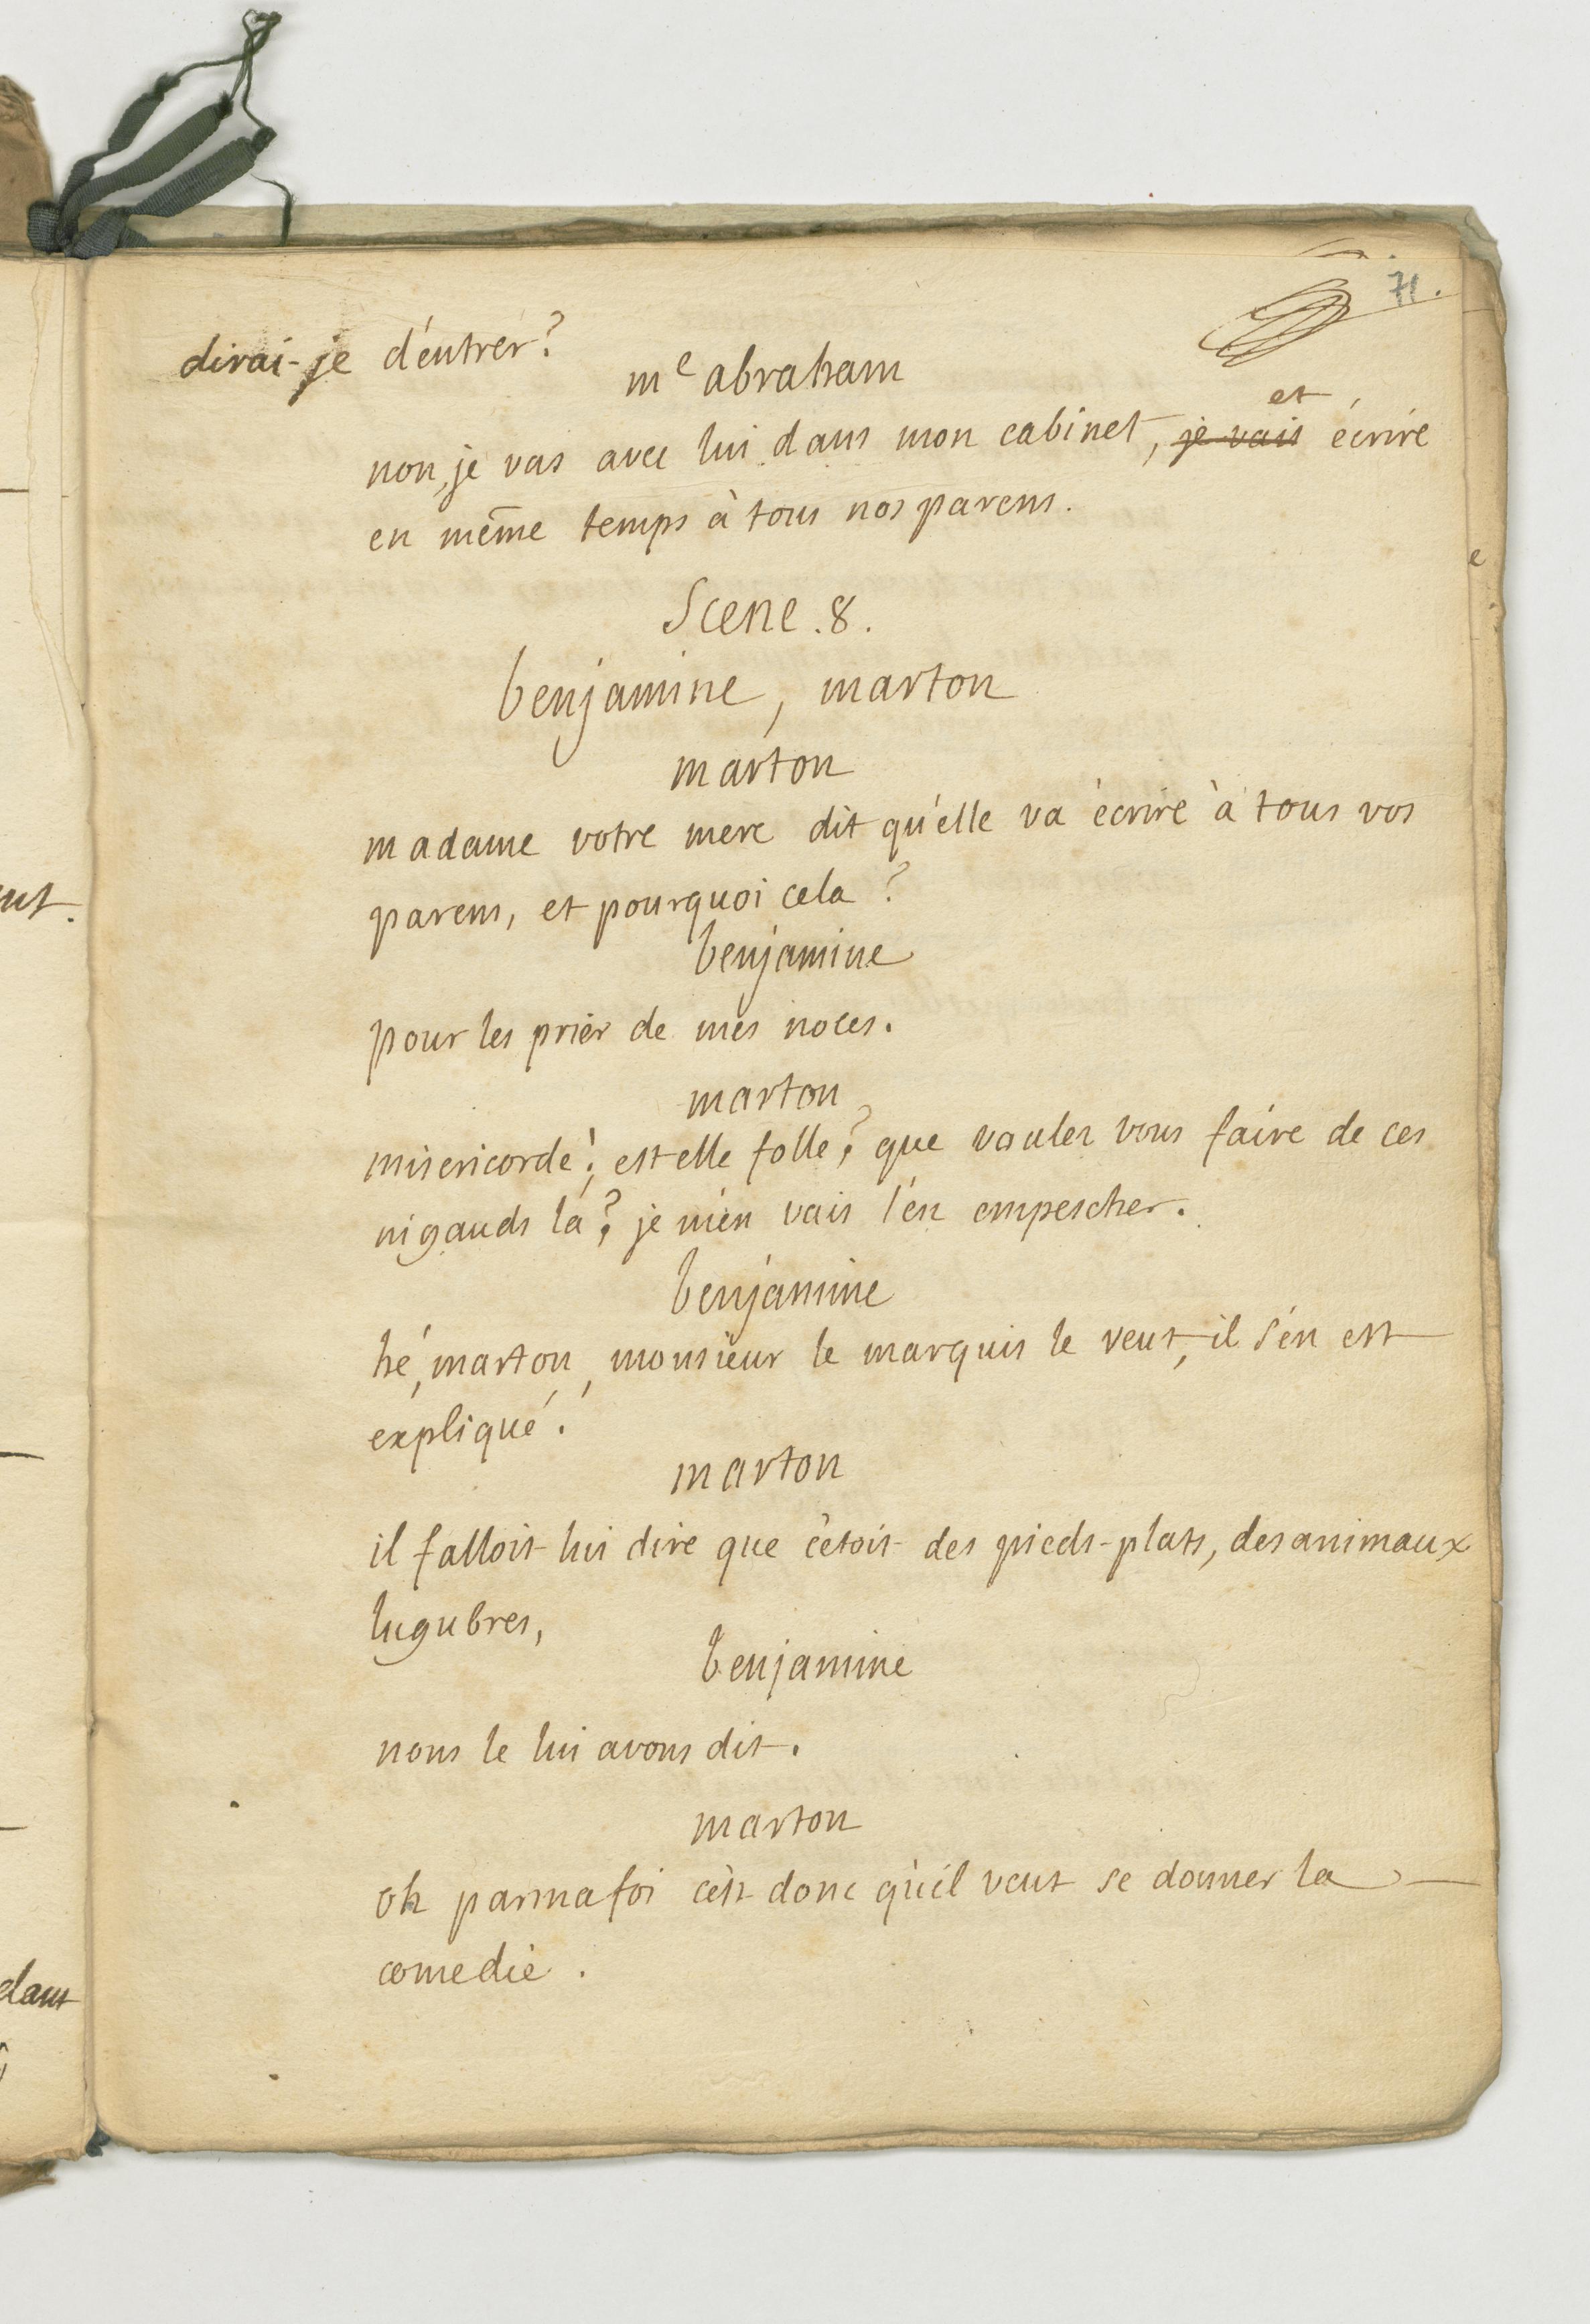 71.
dirai-je d'entrer?
me abraham
et
non, je vas avec lui dans mon cabinet, je vais écrire
en même temps à tous nos parens.
Scene .8.
benjamine, marton
marton
madame votre mere dit qu'elle va écrire à tous vos
parens, et pourquoi cela?
benjamine
pour les prier de mes noces.
marton
misericorde! est elle folle? que voulez vous faire de ces
nigauds là? je m'en vais l'en empescher.
benjamine
hé, marton, monsieur le marquis le veut, il s'en est
expliqué.
marton
il falloit lui dire que c'étoit des pieds-plats, des animaux
lugubres,
benjamine
nous le lui avons dit.
marton
oh parmafoi c'est donc qu'il veut se donner la
comedie.
dans